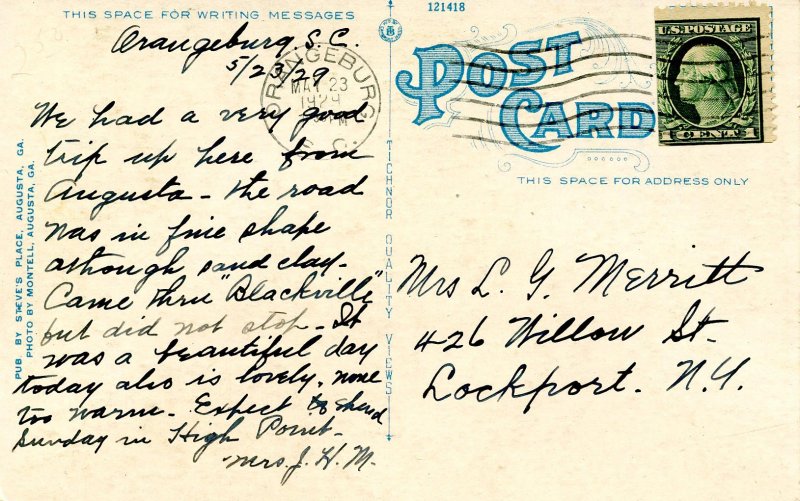 THIS SPACE FOR WRITING MESSAGES
121418
Orangeburg, S.C.
5/23/29
ORANGEBURG
MAY 23
1929
S. C.
We had a very good
trip up here from
Augusta - the road
was in fine shape
although sand clay -
Came thru "Blackville"
but did not stop - It
was a beautiful day
today also is lovely, none
too warm - Expect to spend
Sunday in High Point -
Mrs. J. H. M.
PUB. BY STEVE'S PLACE, AUGUSTA, GA.
PHOTO BY MONTELL, AUGUSTA, GA.
TICHNOR QUALITY VIEWS
POST
CARD
U.S. POSTAGE
1 CENT 1
THIS SPACE FOR ADDRESS ONLY
Mrs L. G. Merritt
426 Willow St.
Lockport. N.Y.